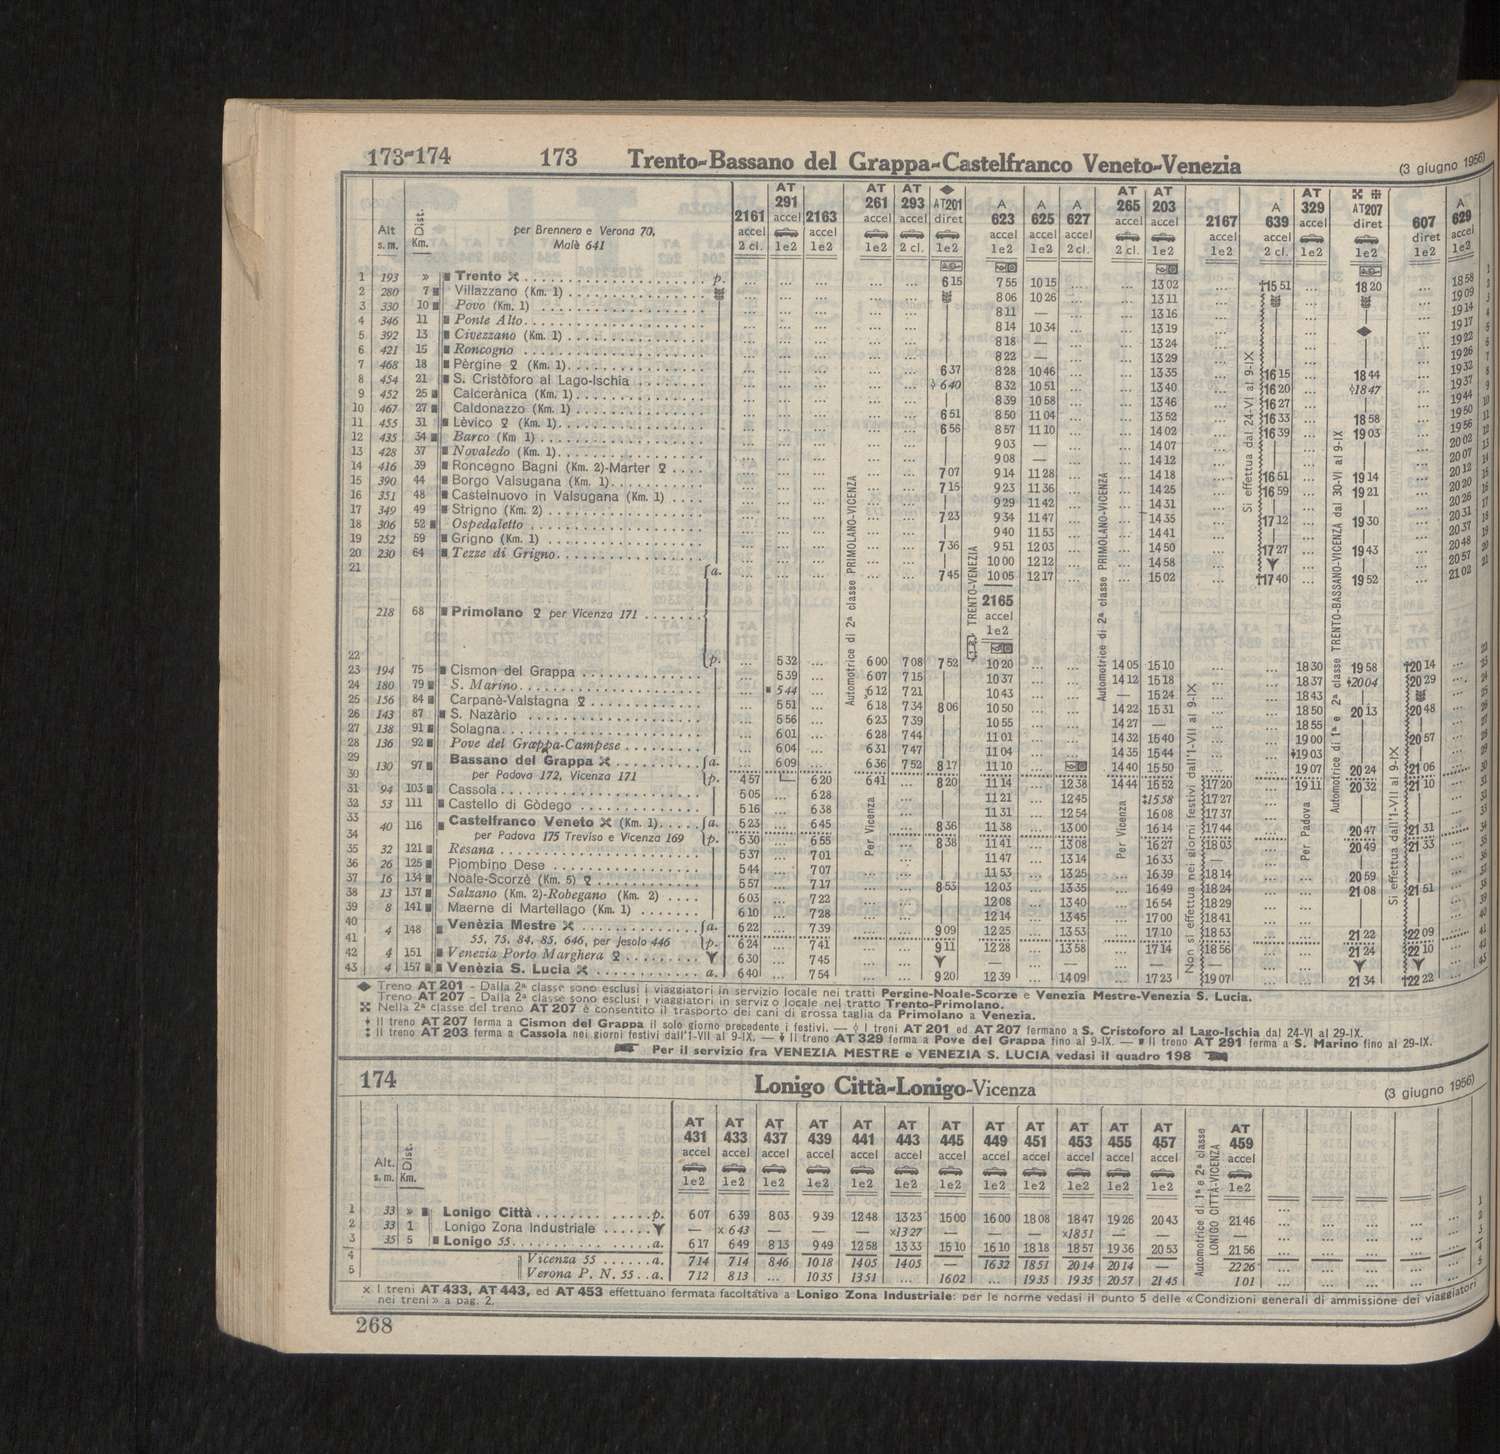 173-174 173 Trento-Bassano del Grappa-Castelfranco Veneto-Venezia (3 giugno 1956)
Alt s. m. Dist. Km. per Brennero e Verona 70, Malè 641
2161 accel 2 cl. AT 291 accel 1e2 2163 accel AT 261 accel 1e2 AT 293 accel 2 cl. ◆ AT201 diret 1e2 A 623 accel 1e2 A 625 accel 1e2 A 627 accel 2 cl. AT 265 accel 2 cl. AT 203 accel 1e2 2167 accel 1e2 A 639 accel 2 cl. AT 329 accel 1e2 AT207 diret 1e2 607 diret 1e2 A 629 accel 1e2
1 193 » Trento p. ... ... ... ... ... 6 15 7 55 10 15 ... ... 13 02 ... †15 51 ... 18 20 ... 18 58
2 280 7 Villazzano (Km. 1) ... ... ... ... ... 8 06 10 26 ... ... 13 11 ... ... ... 19 09
3 330 10 Povo (Km. 1) ... ... ... ... ... 8 11 — ... ... 13 16 ... ... ... 19 14
4 346 11 Ponte Alto ... ... ... ... ... 8 14 10 34 ... ... 13 19 ... ... ... 19 17
5 392 13 Civezzano (Km. 1) ... ... ... ... ... 8 18 — ... ... 13 24 ... ... ... 19 22
6 421 15 Roncogno ... ... ... ... ... 8 22 — ... ... 13 29 ... ... ... 19 26
7 468 18 Pèrgine (Km. 1) ... ... ... ... ... 6 37 8 28 10 46 ... ... 13 35 ... 16 15 ... 18 44 ... 19 32
8 454 21 S. Cristòforo al Lago-Ischia ... ... ... ... ... ◊ 6 40 8 32 10 51 ... ... 13 40 ... 16 20 ... ◊18 47 ... 19 37
9 452 25 Calcerànica (Km. 1) ... ... ... ... ... 8 39 10 58 ... ... 13 46 ... 16 27 ... ... 19 44
10 467 27 Caldonazzo (Km. 1) ... ... ... ... ... 6 51 8 50 11 04 ... ... 13 52 ... 16 33 ... 18 58 ... 19 50
11 455 31 Lèvico (Km. 1) ... ... ... ... ... 6 56 8 57 11 10 ... ... 14 02 ... 16 39 ... 19 03 ... 19 56
12 435 34 Barco (Km 1) ... ... ... ... ... 9 03 — ... ... 14 07 ... ... ... 20 02
13 428 37 Novaledo (Km. 1) ... ... ... ... ... 9 08 — ... ... 14 12 ... ... ... 20 07
14 416 39 Roncegno Bagni (Km. 2)-Marter ... ... ... ... ... 7 07 9 14 11 28 ... ... 14 18 ... 16 51 ... 19 14 ... 20 12
15 390 44 Borgo Valsugana (Km. 1) ... ... ... ... ... 7 15 9 23 11 36 ... ... 14 25 ... 16 59 ... 19 21 ... 20 20
16 351 48 Castelnuovo in Valsugana (Km. 1) ... ... ... ... ... 9 29 11 42 ... ... 14 31 ... ... ... 20 26
17 349 49 Strigno (Km. 2) ... ... ... ... ... 7 23 9 34 11 47 ... ... 14 35 ... 17 12 ... 19 30 ... 20 31
18 306 52 Ospedaletto ... ... ... ... ... 9 40 11 53 ... ... 14 41 ... ... ... 20 37
19 252 59 Grigno (Km. 1) ... ... ... ... ... 7 36 9 51 12 03 ... ... 14 50 ... 17 27 ... 19 43 ... 20 48
20 230 64 Tezze di Grigno ... ... ... ... ... 10 00 12 12 ... ... 14 58 ... ... ... 20 57
21 a. ... ... ... ... ... 7 45 10 05 12 17 ... ... 15 02 ... †17 40 ... 19 52 ... 21 02
218 68 Primolano per Vicenza 171
2165 accel 1e2
22 p. ... 5 32 ... 6 00 7 08 7 52 10 20 ... ... 14 05 15 10 ... ... 18 30 19 58 †20 14
23 194 75 Cismon del Grappa ... 5 39 ... 6 07 7 15 10 37 ... ... 14 12 15 18 ... ... 18 37 20 04 20 29
24 180 79 S. Marino ... 5 44 ... 6 12 7 21 10 43 ... ... — 15 24 ... ... 18 43
25 156 84 Carpanè-Valstagna ... 5 51 ... 6 18 7 34 8 06 10 50 ... ... 14 22 15 31 ... ... 18 50 20 13 20 48
26 143 87 S. Nazàrio ... 5 56 ... 6 23 7 39 10 55 ... ... 14 27 — ... ... 18 55
27 138 91 Solagna ... 6 01 ... 6 28 7 44 11 01 ... ... 14 32 15 40 ... ... 19 00 20 57
28 136 92 Pove del Grappa-Campese ... 6 04 ... 6 31 7 47 11 04 ... ... 14 35 15 44 ... ... 19 03
29 130 97 Bassano del Grappa a. ... 6 09 ... 6 36 7 52 8 17 11 10 ... 14 40 15 50 ... ... 19 07 20 24 21 06
30 per Padova 172, Vicenza 171 p. 4 57 6 20 6 41 ... 8 20 11 14 ... 12 38 14 44 15 52 17 20 ... 19 11 20 32 21 10
31 94 103 Cassola 5 05 ... 6 28 ... 11 21 ... 12 45 ‡15 58 17 27
32 53 111 Castello di Gòdego 5 16 ... 6 38 ... 11 31 ... 12 54 16 08 17 37
33 40 116 Castelfranco Veneto (Km. 1) a. 5 23 ... 6 45 ... 8 36 11 38 ... 13 00 16 14 17 44 ... 20 47 21 31
34 per Padova 175 Treviso e Vicenza 169 p. 5 30 ... 6 55 ... 8 38 11 41 ... 13 08 16 27 18 03 ... 20 49 21 33
35 32 121 Resana 5 37 ... 7 01 ... 11 47 ... 13 14 16 33 —
36 26 125 Piombino Dese 5 44 ... 7 07 ... 11 53 ... 13 25 16 39 18 14 ... 20 59
37 16 134 Noale-Scorzè (Km. 5) 5 57 ... 7 17 ... 8 53 12 03 ... 13 35 16 49 18 24 ... 21 08 21 51
38 13 137 Salzano (Km. 2)-Robegano (Km. 2) 6 03 ... 7 22 ... 12 08 ... 13 40 16 54 18 29
39 8 141 Maerne di Martellago (Km. 1) 6 10 ... 7 28 ... 12 14 ... 13 45 17 00 18 41
40 4 148 Venèzia Mestre a. 6 22 ... 7 39 ... 9 09 12 25 ... 13 53 ... 17 10 18 53 ... 21 22 22 09
41 55, 75, 84, 85, 646, per Jesolo 446 p. 6 24 ... 7 41 ... 9 11 12 28 ... 13 58 ... 17 14 18 56 ... 21 24 22 10
42 4 151 Venèzia Porto Marghera 6 30 ... 7 45 ... — ... — ... —
43 4 157 Venèzia S. Lucia a. 6 40 ... 7 54 ... 9 20 12 39 ... 14 09 ... 17 23 19 07 ... 21 34 †22 22
Automotrice di 2ª classe PRIMOLANO-VICENZA
Per Vicenza
TRENTO-VENEZIA
Automotrice di 2ª classe PRIMOLANO-VICENZA
Per Vicenza
Non si effettua nei giorni festivi dall'1-VII al 9-IX
Si effettua dal 24-VI al 9-IX
Per Padova
Automotrice di 1ª e 2ª classe TRENTO-BASSANO-VICENZA dal 30-VI al 9-IX
Si effettua dall'1-VII al 9-IX
◆ Treno AT 201 - Dalla 2ª classe sono esclusi i viaggiatori in servizio locale nei tratti Pergine-Noale-Scorze e Venezia Mestre-Venezia S. Lucia.
Treno AT 207 - Dalla 2ª classe sono esclusi i viaggiatori in servizio locale nel tratto Trento-Primolano.
Nella 2ª classe del treno AT 207 è consentito il trasporto dei cani di grossa taglia da Primolano a Venezia.
Il treno AT 207 ferma a Cismon del Grappa il solo giorno precedente i festivi. — ◊ I treni AT 201 ed AT 207 fermano a S. Cristoforo al Lago-Ischia dal 24-VI al 29-IX.
‡ Il treno AT 203 ferma a Cassola nei giorni festivi dall'1-VII al 9-IX. — Il treno AT 329 ferma a Pove del Grappa fino al 9-IX. — Il treno AT 291 ferma a S. Marino fino al 29-IX.
Per il servizio fra VENEZIA MESTRE e VENEZIA S. LUCIA vedasi il quadro 198
174 Lonigo Città-Lonigo-Vicenza (3 giugno 1956)
Alt. s. m. Dist. Km.
AT 431 accel 1e2 AT 433 accel 1e2 AT 437 accel 1e2 AT 439 accel 1e2 AT 441 accel 1e2 AT 443 accel 1e2 AT 445 accel 1e2 AT 449 accel 1e2 AT 451 accel 1e2 AT 453 accel 1e2 AT 455 accel 1e2 AT 457 accel 1e2 AT 459 accel 1e2
Automotrice di 1ª e 2ª classe LONIGO CITTÀ-VICENZA
1 33 » Lonigo Città p. 6 07 6 39 8 03 9 39 12 48 13 23 15 00 16 00 18 08 18 47 19 26 20 43 21 46
2 33 1 Lonigo Zona Industriale — x 6 43 — — — x13 27 — — — x18 51 — —
3 35 5 Lonigo 55 a. 6 17 6 49 8 13 9 49 12 58 13 33 15 10 16 10 18 18 18 57 19 36 20 53 21 56
4 Vicenza 55 a. 7 14 7 14 8 46 10 18 14 05 14 05 — 16 32 18 51 20 14 20 14 — 22 26
5 Verona P. N. 55 a. 7 12 8 13 ... 10 35 13 51 ... 16 02 ... 19 35 19 35 20 57 21 45 1 01
x I treni AT 433, AT 443, ed AT 453 effettuano fermata facoltativa a Lonigo Zona Industriale: per le norme vedasi il punto 5 delle «Condizioni generali di ammissione dei viaggiatori
nei treni» a pag. 2.
268